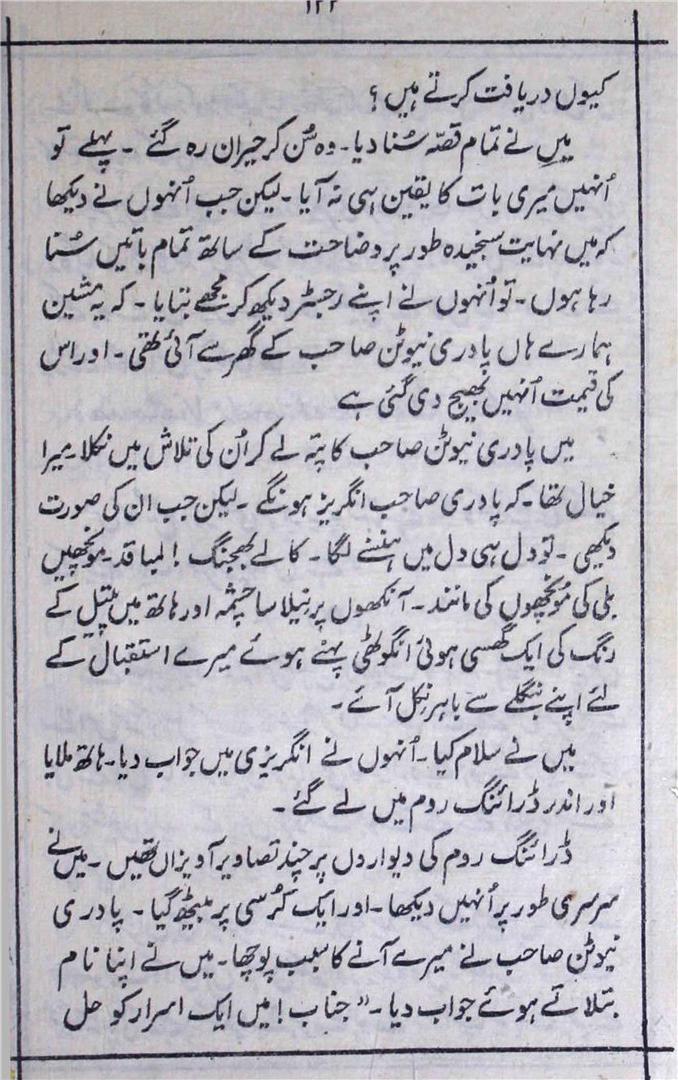 ۱۲۲
کیوں دریافت کرتے ہیں؟
میں نے تمام قصّہ سُنا دیا۔ وہ سُن کر حیران رہ گئے ۔ پہلے تو
اُنہیں میری بات کا یقین ہی نہ آیا ۔ لیکن جب اُنہوں نے دیکھا
کہ میں نہایت سنجیدہ طور پر وضاحت کے ساتھ تمام باتیں سُنا
رہا ہوں ۔ تو اُنہوں نے اپنے رجسٹر دیکھ کر مجھے بتایا ۔ کہ یہ مشین
ہمارے ہاں پادری نیوٹن صاحب کے گھر سے آئی تھی ۔ اور اس
کی قیمت اُنہیں بھیج دی گئی ہے
میں پادری نیوٹن صاحب کا پتہ لے کر اُن کی تلاش میں نکلا۔ میرا
خیال تھا ۔ کہ پادری صاحب انگریز ہونگے ۔ لیکن جب ان کی صورت
دیکھی ۔ تو دل ہی دل میں ہنسنے لگا ۔ کالے بھجنگ ! لمبا قد۔ مونچھیں
بلی کی مونچھوں کی مانند ۔ آنکھوں پر نیلا سا چشمہ اور ہاتھ میں پیتل کے
رنگ کی ایک گھسی ہوئی انگوٹھی پہنے ہوئے میرے استقبال کے
لئے اپنے بنگلے سے باہر نکل آئے ۔
میں نے سلام کیا ۔ اُنہوں نے انگریزی میں جواب دیا۔ ہاتھ ملایا
اور اندر ڈرائنگ روم میں لے گئے ۔
ڈرائنگ روم کی دیواروں پر چند تصاویر آویزاں تھیں ۔ میں نے
سرسری طور پر اُنہیں دیکھا ۔ اور ایک کُرسی پر بیٹھ گیا ۔ پادری
نیوٹن صاحب نے میرے آنے کا سبب پوچھا ۔ میں نے اپنا نام
بتلاتے ہوئے جواب دیا ۔ ”جناب ! میں ایک اسرار کو حل